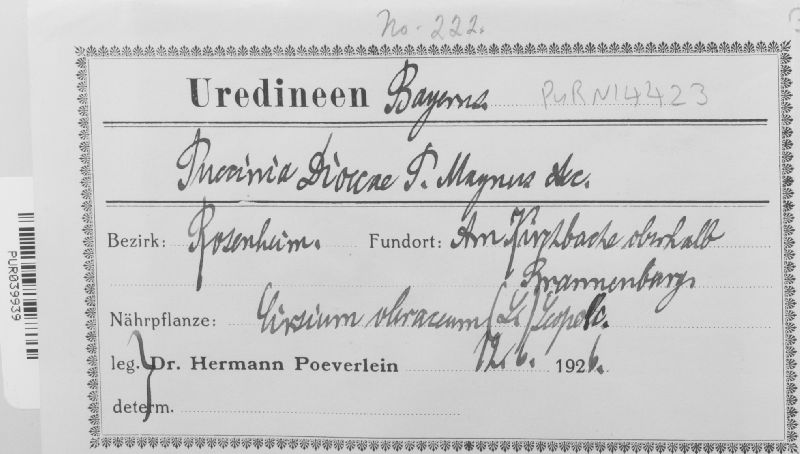 No. 222.
Uredineen Bayerns. PUR N14423
Puccinia Dioicae P. Magnus
Bezirk: Rosenheim. Fundort: Am Kirchbache oberhalb
Brannenburg.
Nährpflanze: Cirsium oleraceum (L.) Scopoli.
leg. Dr. Hermann Poeverlein 12. 6. 1926.
determ.
PUR039939